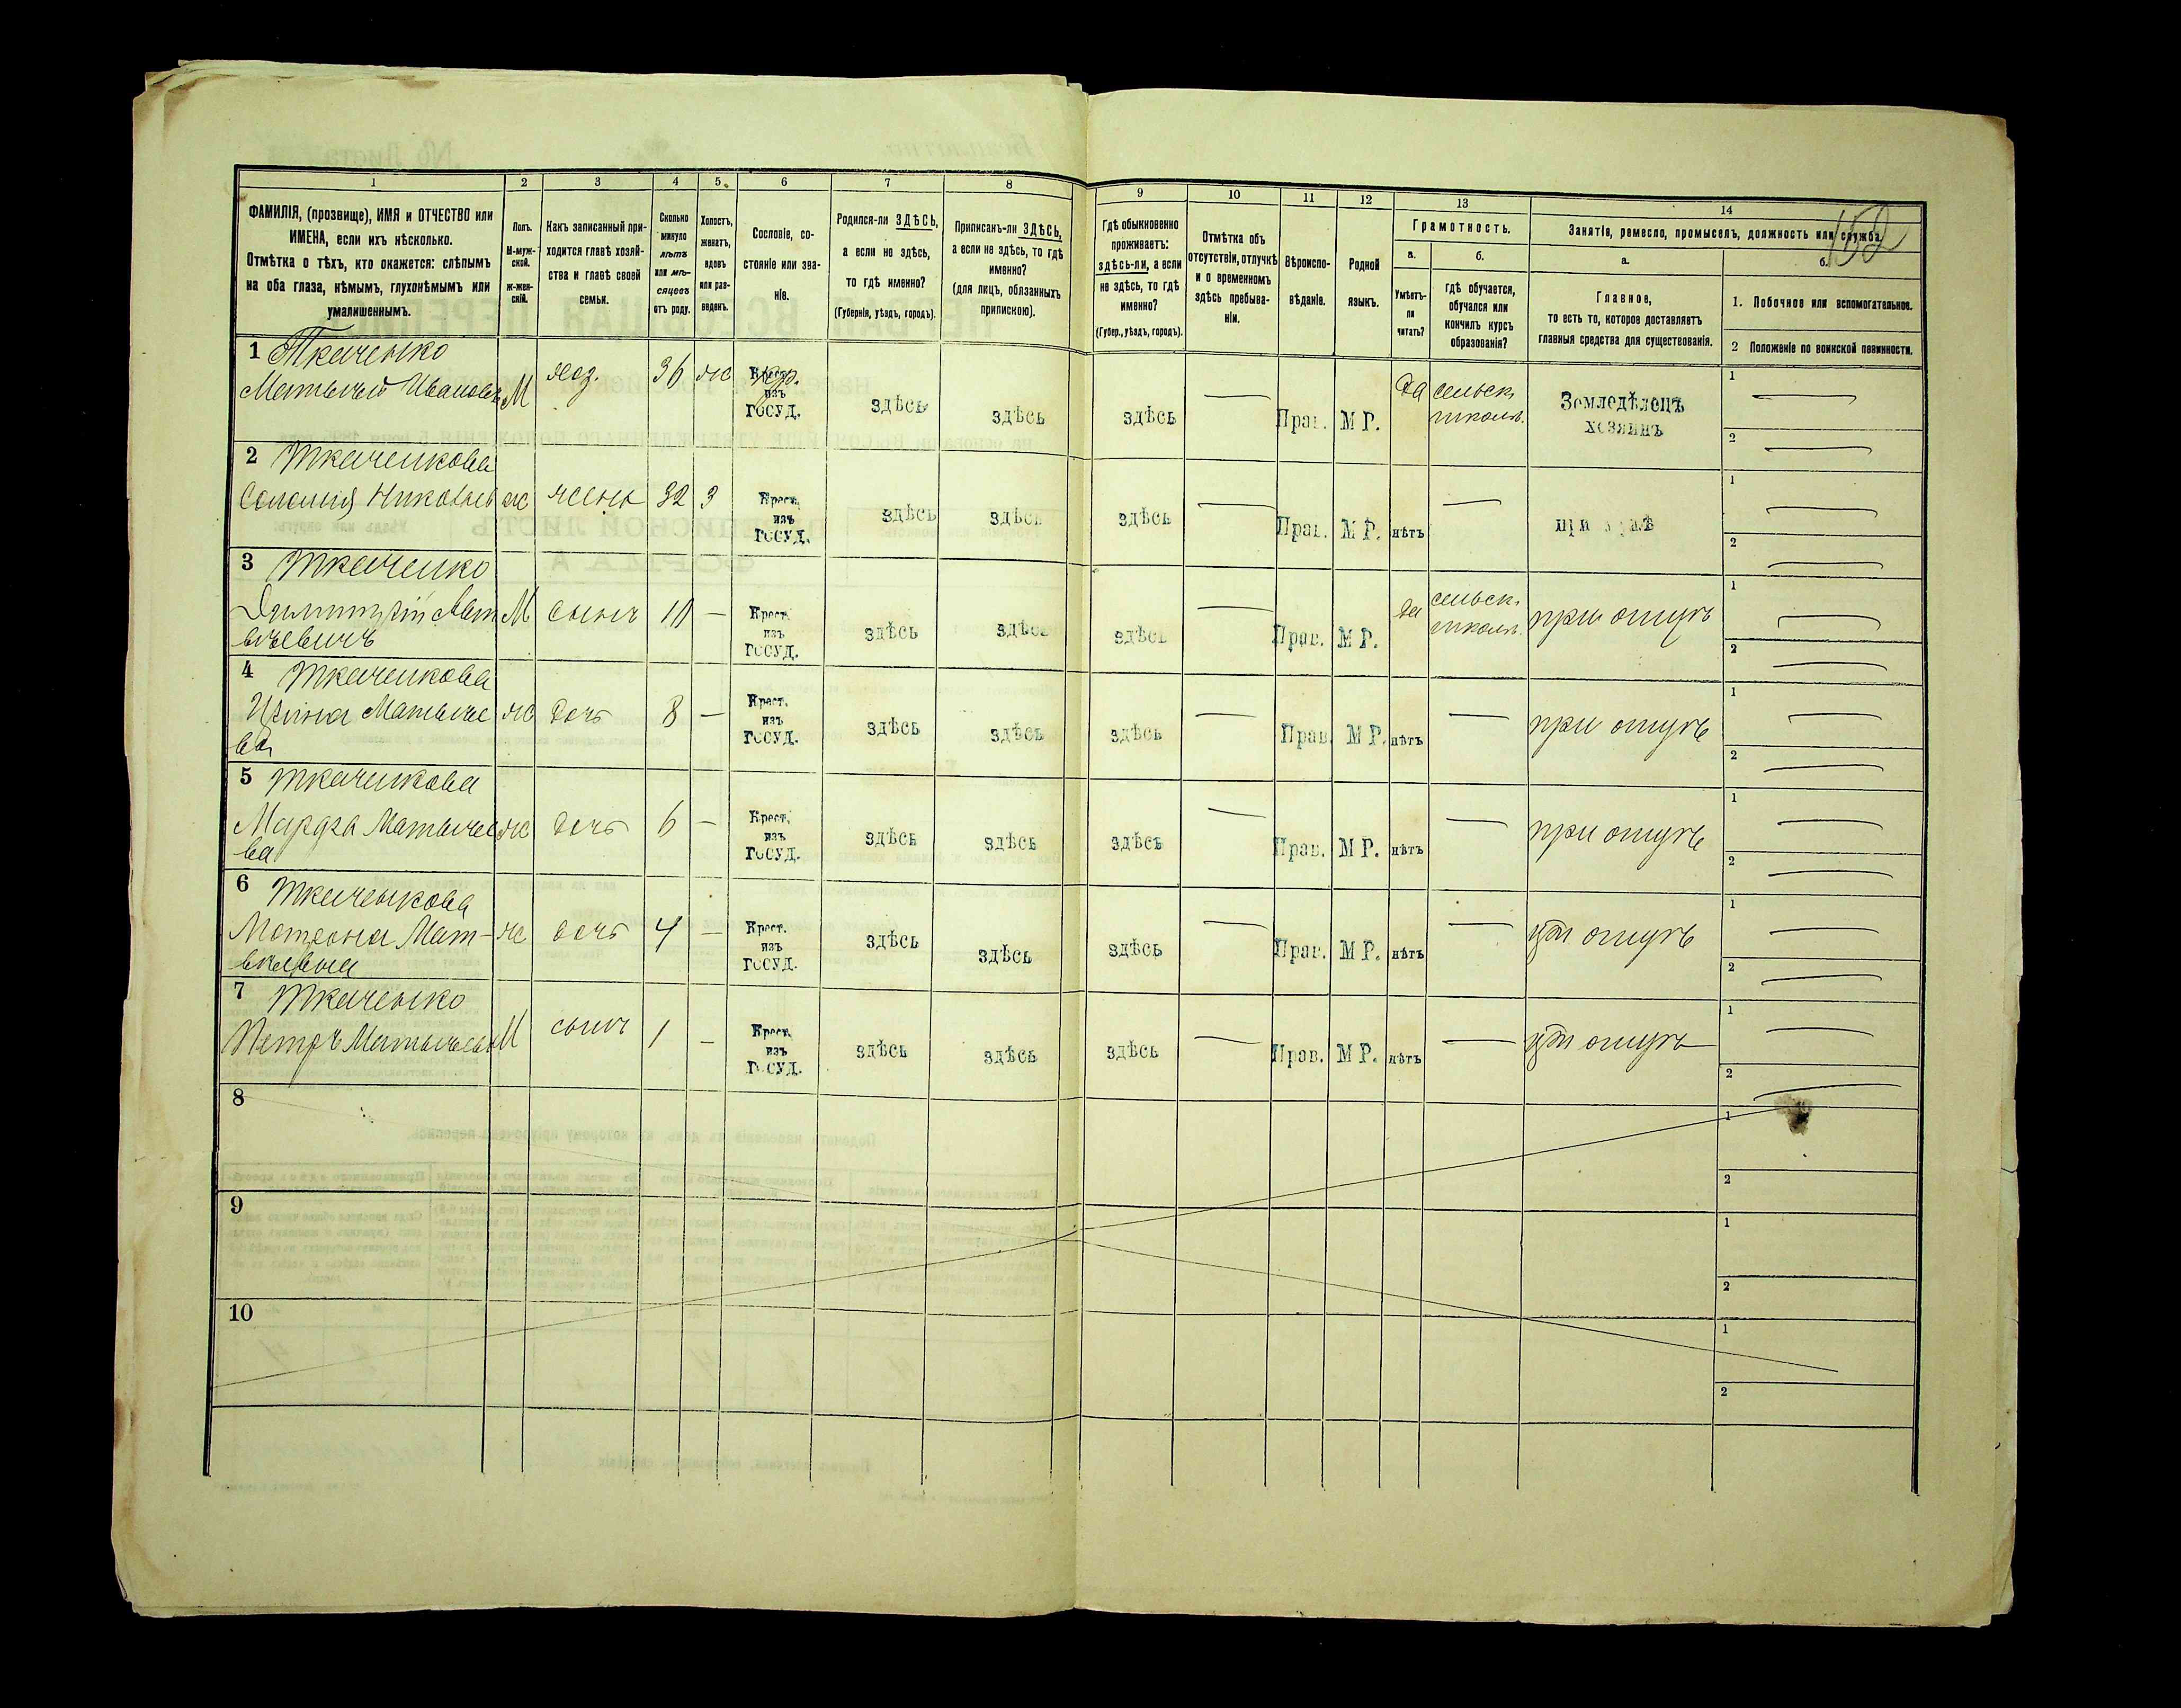 152
1 2 3 4 5 6 7 8 9 10 11 12 13 14
ФАМИЛІЯ, (прозвище), ИМЯ и ОТЧЕСТВО или
ИМЕНА, если ихъ нѣсколько.
Отмѣтка о тѣхъ, кто окажется: слѣпымъ
на оба глаза, нѣмымъ, глухонѣмымъ или
умалишеннымъ.
Полъ.
М-муж-
ской.
ж-жен-
скій.
Какъ записанный при-
ходится главѣ хозяй-
ства и главѣ своей
семьи.
Сколько
минуло
лѣтъ
или мѣ-
сяцевъ
отъ роду.
Холостъ,
женатъ,
вдовъ
или раз-
веденъ.
Сословіе, со-
стояніе или зва-
ніе.
Родился-ли ЗДѢСЬ,
а если не здѣсь,
то гдѣ именно?
(Губернія, уѣздъ, городъ).
Приписанъ-ли ЗДѢСЬ,
а если не здѣсь, то гдѣ
именно?
(для лицъ, обязанныхъ
припискою).
Гдѣ обыкновенно
проживаетъ:
здѣсь-ли, а если
не здѣсь, то гдѣ
именно?
(Губер., уѣздъ, городъ).
Отмѣтка объ
отсутствіи, отлучкѣ
и о временномъ
здѣсь пребыва-
ніи.
Вѣроиспо-
вѣданіе.
Родной
языкъ.
Грамотность.
а.
Умѣетъ-
ли
читать?
б.
гдѣ обучается,
обучался или
кончилъ курсъ
образованія?
Занятія, ремесло, промыселъ, должность или служба.
а.
Главное,
то есть то, которое доставляетъ
главныя средства для существованія.
б.
1. Побочное или вспомогательное.
2 Положеніе по воинской повинности.
1 Ткаченко
Матвѣй Ивановъ М хоз. 36 ж Крест. изъ ГОСУД. здѣсь здѣсь здѣсь — Прав. М Р. да сельск. школѣ. Земледѣлецъ хозяинъ 1 — 2 —
2 Ткаченкова
Соломія ж жена 32 З Крест. изъ ГОСУД. здѣсь здѣсь здѣсь — Прав. М Р. нѣтъ — при 1 — 2 —
3 Ткаченко
Димитрій Мат
вѣевичъ М сынъ 10 — Крест. изъ ГОСУД. здѣсь здѣсь здѣсь — Прав. М Р. да сельск. школѣ. при отцѣ 1 — 2 —
4 Ткаченкова
Ирина Матвѣе
ва ж дочь 8 — Крест. изъ ГОСУД. здѣсь здѣсь здѣсь — Прав. М Р. нѣтъ — при отцѣ 1 — 2 —
5 Ткаченкова
Марфа Матвѣе
ва ж дочь 6 — Крест. изъ ГОСУД. здѣсь здѣсь здѣсь — Прав. М Р. нѣтъ — при отцѣ 1 — 2 —
6 Ткаченкова
Мотрона Мат-
вѣева ж дочь 4 — Крест. изъ ГОСУД. здѣсь здѣсь здѣсь — Прав. М Р. нѣтъ — при отцѣ 1 — 2 —
7 Ткаченко
Петръ Матвѣевъ М сынъ 1 — Крест. изъ ГОСУД. здѣсь здѣсь здѣсь — Прав. М Р. нѣтъ — при отцѣ 1 — 2 —
8 1 2
9 1 2
10 1 2